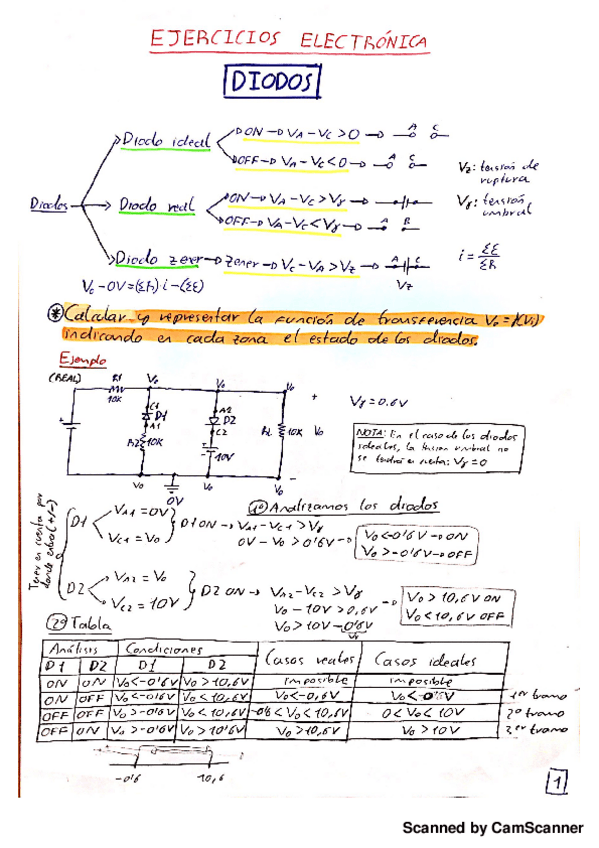 EJERCICIOS ELECTRÓNICA
DIODOS
Diodos
Diodo ideal
ON → VA-VC>0 → A C
OFF → VA-VC<0 → A C
Diodo real
ON → VA-VC>Vγ →
OFF → VA-VC<Vγ → A
Diodo zener → Zener → VC-VA>VZ → A C
VZ
VZ: tensión de ruptura
Vγ: tensión umbral
i = Σε/ΣR
VC-0V=(ΣR)i-(Σε)
* Calcular y representar la función de transferencia Vo=f(Vi)
indicando en cada zona el estado de los diodos.
Ejemplo
(REAL)
R1
10K
Vo
Vo
Vo
C1
D1
A1
R2
10K
A2
D2
C2
10V
RL
10K
+
Vo
-
Vo
0V
Vo
Vo
Vγ=0.6V
NOTA: En el caso de los diodos
ideales, la tensión umbral no
se tendrá en cuenta: Vγ=0
1º Analizamos los diodos
Tener en cuenta por
donde entra (+/-)
D1
VA1=0V
VC1=Vo
D1 ON → VA1-VC1>Vγ
0V-Vo>0'6V →
Vo<-0'6V → ON
Vo>-0'6V → OFF
D2
VA2=Vo
VC2=10V
D2 ON → VA2-VC2>Vγ
Vo-10V>0,6V →
Vo>10V-0'6V
Vγ
Vo>10,6V ON
Vo<10,6V OFF
2º Tabla
Análisis Condiciones Casos reales Casos ideales
D1 D2 D1 D2
ON ON Vo<-0'6V Vo>10,6V imposible imposible
ON OFF Vo<-0'6V Vo<10,6V Vo<-0,6V Vo<-0'6V 1er tramo
OFF OFF Vo>-0'6V Vo<10,6V -0'6<Vo<10,6V 0<Vo<10V 2º tramo
OFF ON Vo>-0'6V Vo>10'6V Vo>10,6V Vo>10V 3er tramo
-0'6 10,6
1
Scanned by CamScanner